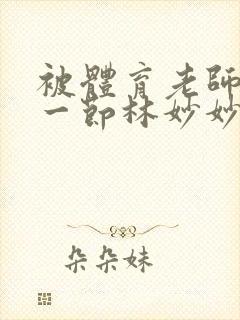 被體育老師
一節林妙妙
朵朵妹